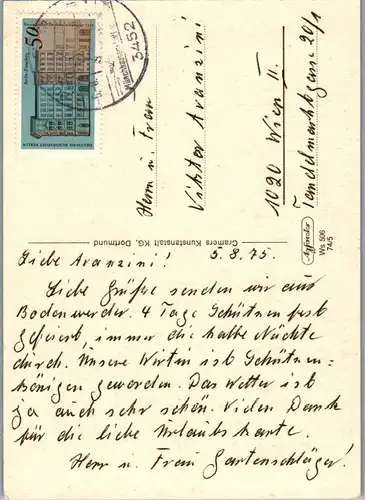 50
DEUTSCHE BUNDESPOST BERLIN
3452
Herrn u. Frau
Viktor Avanzini
1020 Wien II.
Tandelmarktgasse 20/1
Cramers Kunstanstalt KG, Dortmund
Ws 506
74/5
5.8.75.
Liebe Avanzini!
Liebe Grüße senden wir aus
Bodenwerder. 4 Tage Schützenfest
gefeiert, immer die halbe Nächte
durch. Unsere Wirtin ist Schützen=
königen geworden. Das Wetter ist
ja auch sehr schön. Vielen Dank
für die liebe Urlaubskarte.
Herr u. Frau Gartenschläger!